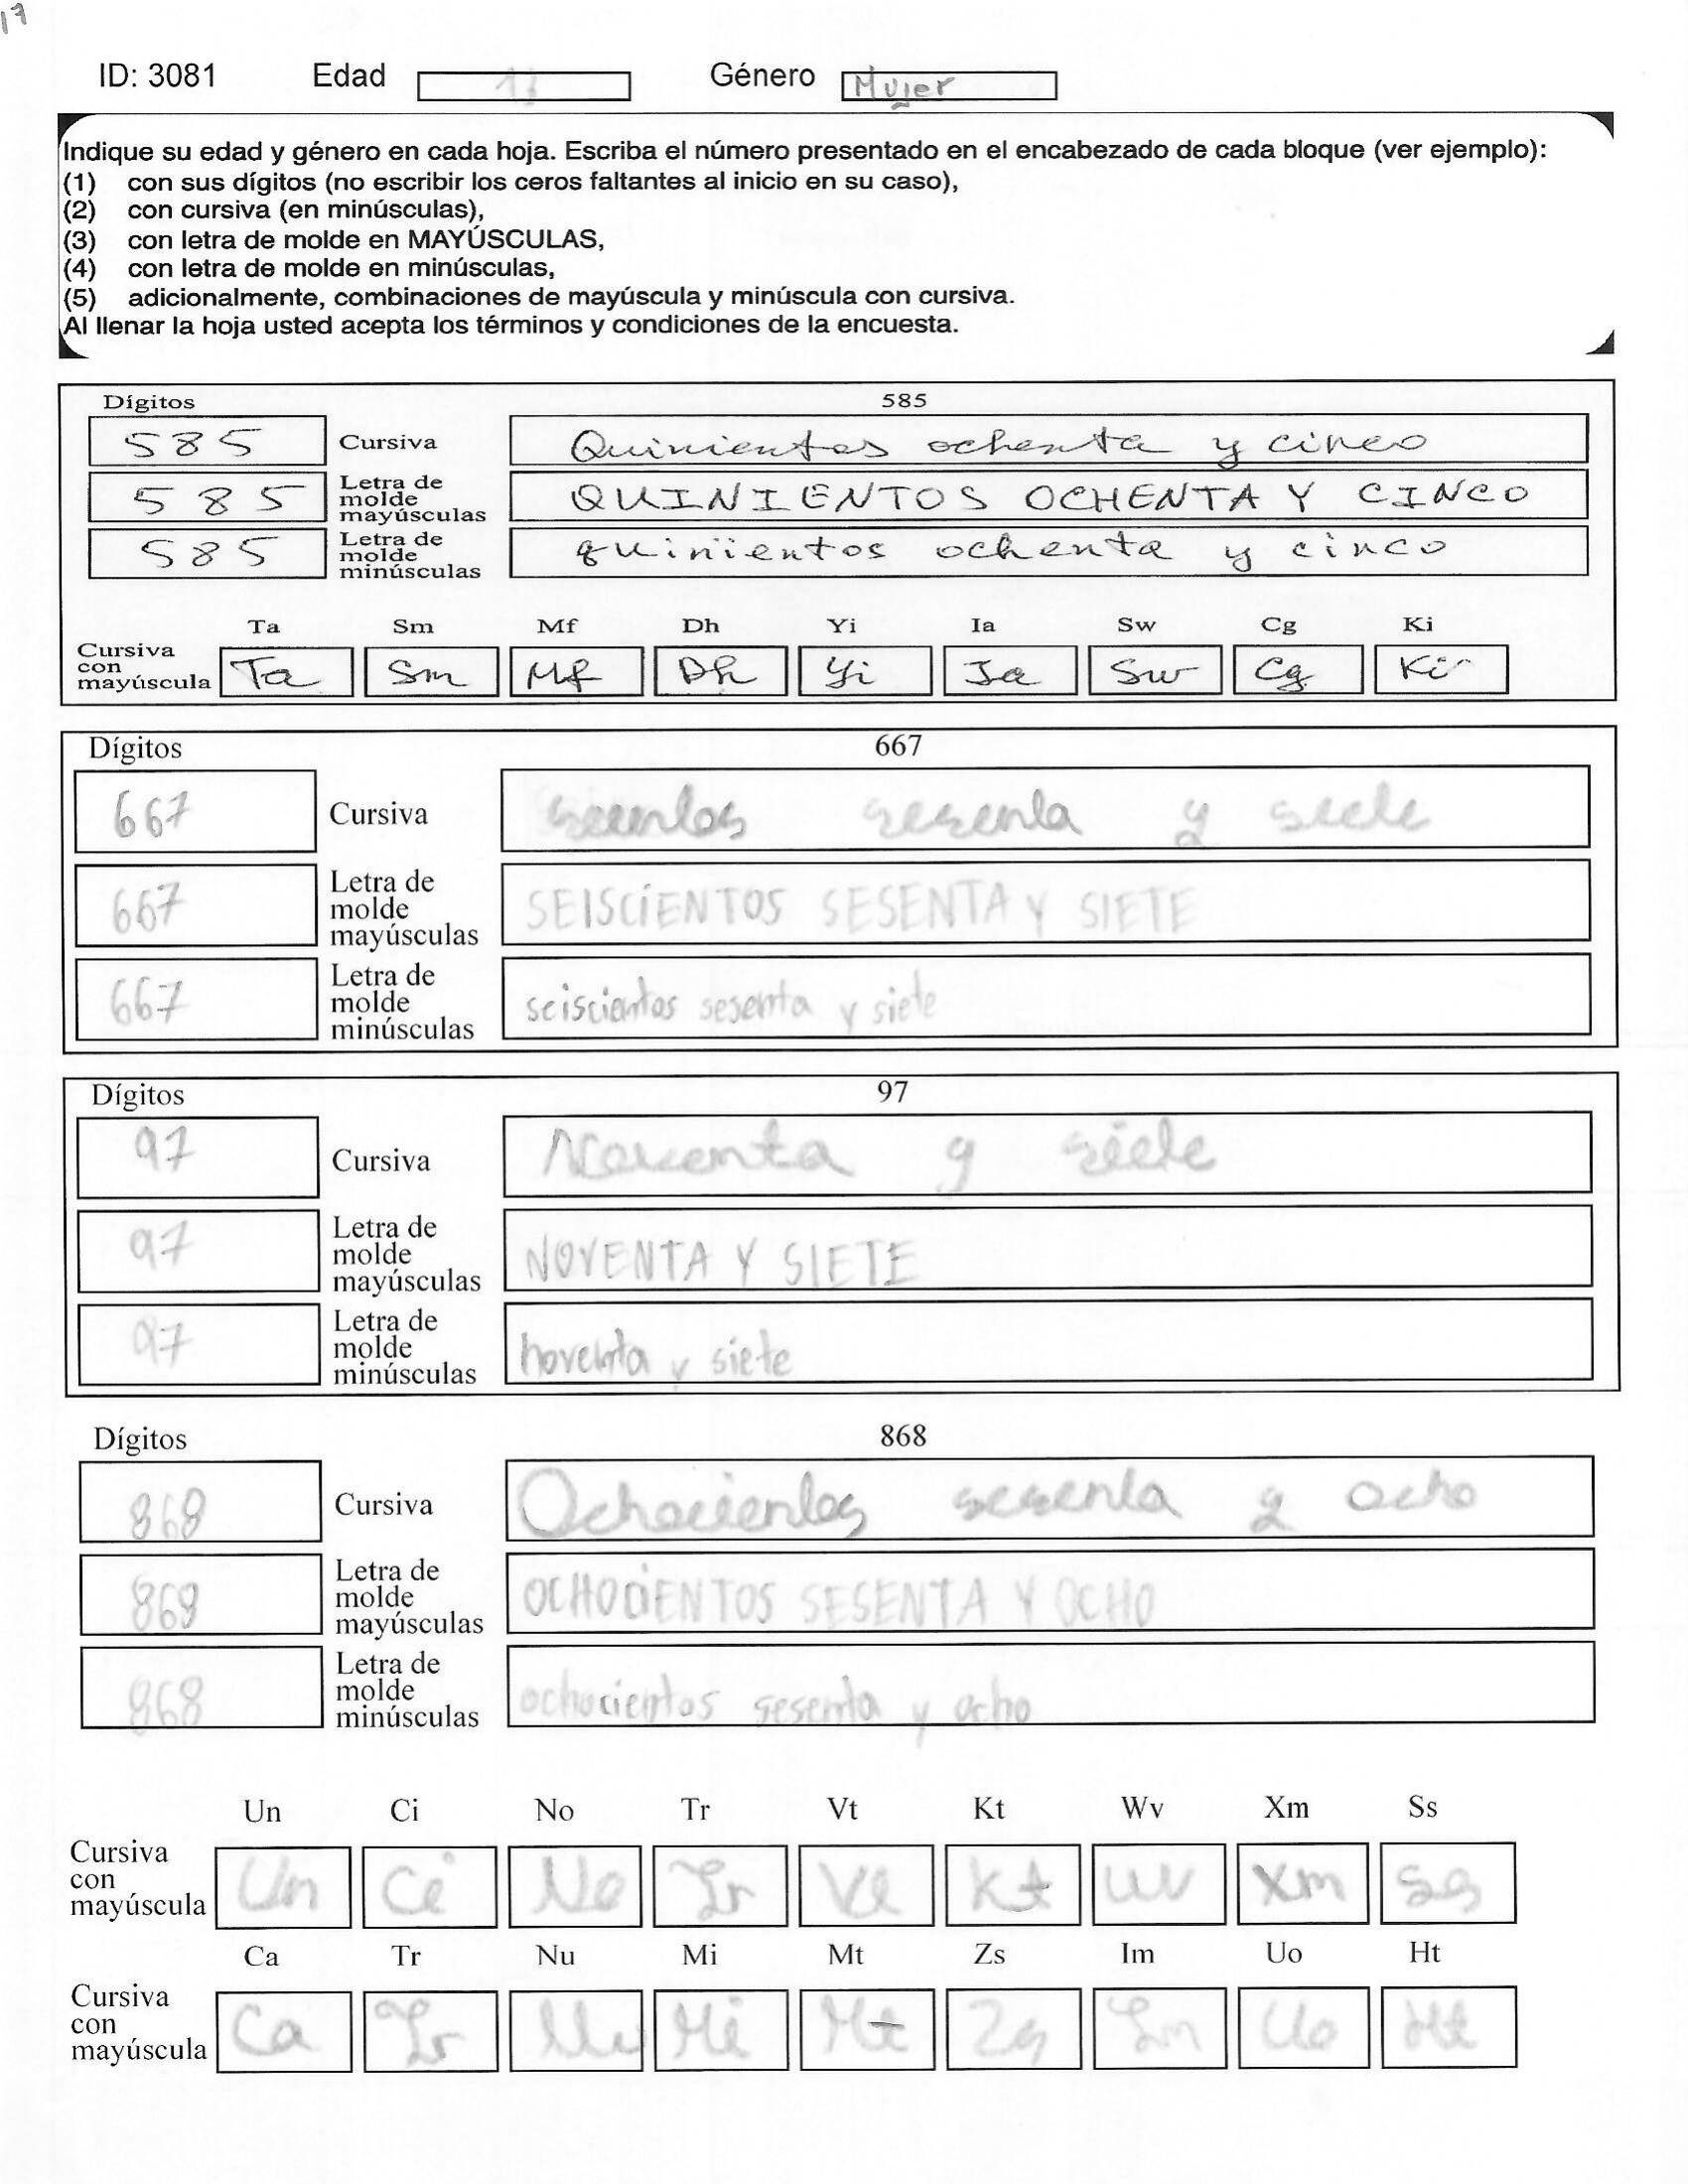 17
ID: 3081 Edad Género Mujer
Indique su edad y género en cada hoja. Escriba el número presentado en el encabezado de cada bloque (ver ejemplo):
(1) con sus dígitos (no escribir los ceros faltantes al inicio en su caso),
(2) con cursiva (en minúsculas),
(3) con letra de molde en MAYÚSCULAS,
(4) con letra de molde en minúsculas,
(5) adicionalmente, combinaciones de mayúscula y minúscula con cursiva.
Al llenar la hoja usted acepta los términos y condiciones de la encuesta.
Dígitos 585
585 Cursiva Quinientos ochenta y cinco
585 Letra de molde mayúsculas QUINIENTOS OCHENTA Y CINCO
585 Letra de molde minúsculas quinientos ochenta y cinco
Ta Sm Mf Dh Yi Ia Sw Cg Ki
Cursiva con mayúscula Ta Sm Mf Dh Yi Ia Sw Cg Ki
Dígitos 667
667 Cursiva sesenta y siete
667 Letra de molde mayúsculas SEISCIENTOS SESENTA Y SIETE
667 Letra de molde minúsculas seiscientos sesenta y siete
Dígitos 97
97 Cursiva Noventa y siete
97 Letra de molde mayúsculas NOVENTA Y SIETE
97 Letra de molde minúsculas noventa y siete
Dígitos 868
868 Cursiva Ochocientos sesenta y ocho
868 Letra de molde mayúsculas OCHOCIENTOS SESENTA Y OCHO
868 Letra de molde minúsculas ochocientos sesenta y ocho
Un Ci No Tr Vt Kt Wv Xm Ss
Cursiva con mayúscula Un Ci No Tr Vt Kt Wv Xm Ss
Ca Tr Nu Mi Mt Zs Im Uo Ht
Cursiva con mayúscula Ca Tr Nu Mi Mt Zs Im Uo Ht